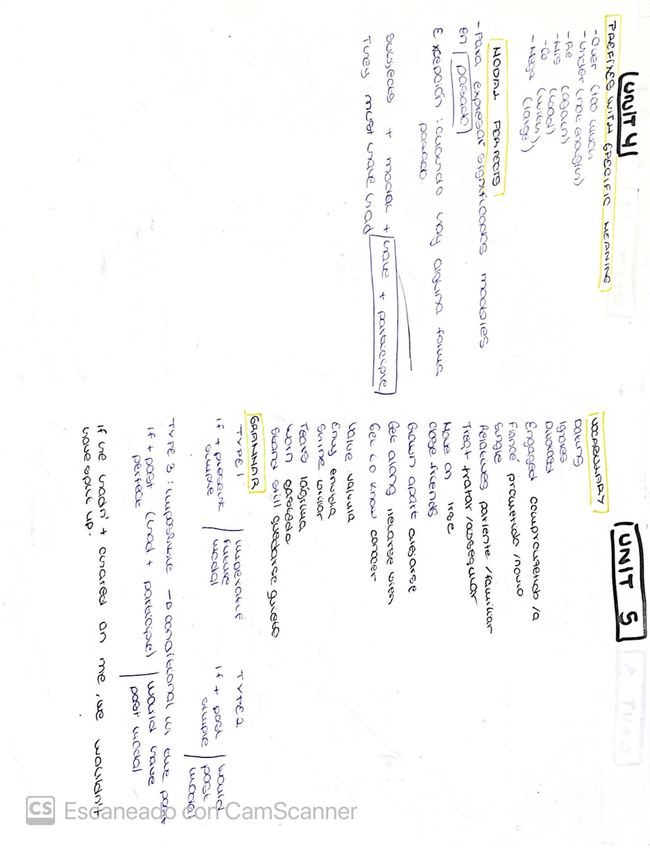 UNIT 4
PREFIXES WITH SPECIFIC MEANING
- Over (too much
- Under (not enough)
- Re (again)
- Mis (bad)
- Co (with)
- Mega (large)
MODAL PERFECTS
- Para expresar significados modales
en pasado
Excepción: cuando hay alguna forma
pasado
Subjects + modal + have + participle
They must have had
UNIT 5
VOCABULARY
Dating
Ignores
Divorced
Engaged comprometido/a
Fiance prometido/novio
Single
Relatives pariente/familiar
Treat tratar/asegurar
Move on irse
Close friends
Grown apart alejarse
Get along llevarse bien
Get to know conocer
Value valvula
Envy envidia
Shine brillar
Tears lágrima
Worn gastado
Stand still quedarse quieto
GRAMMAR
TYPE 1
If + present simple / imperative future modal
TYPE 2
If + past simple / would past modal
TYPE 3: impossible → conditional in the past
If + past (had + participle) / would have
perfect past modal
If he hadn't cheated on me, we wouldn't
have split up.
CS Escaneado con CamScanner